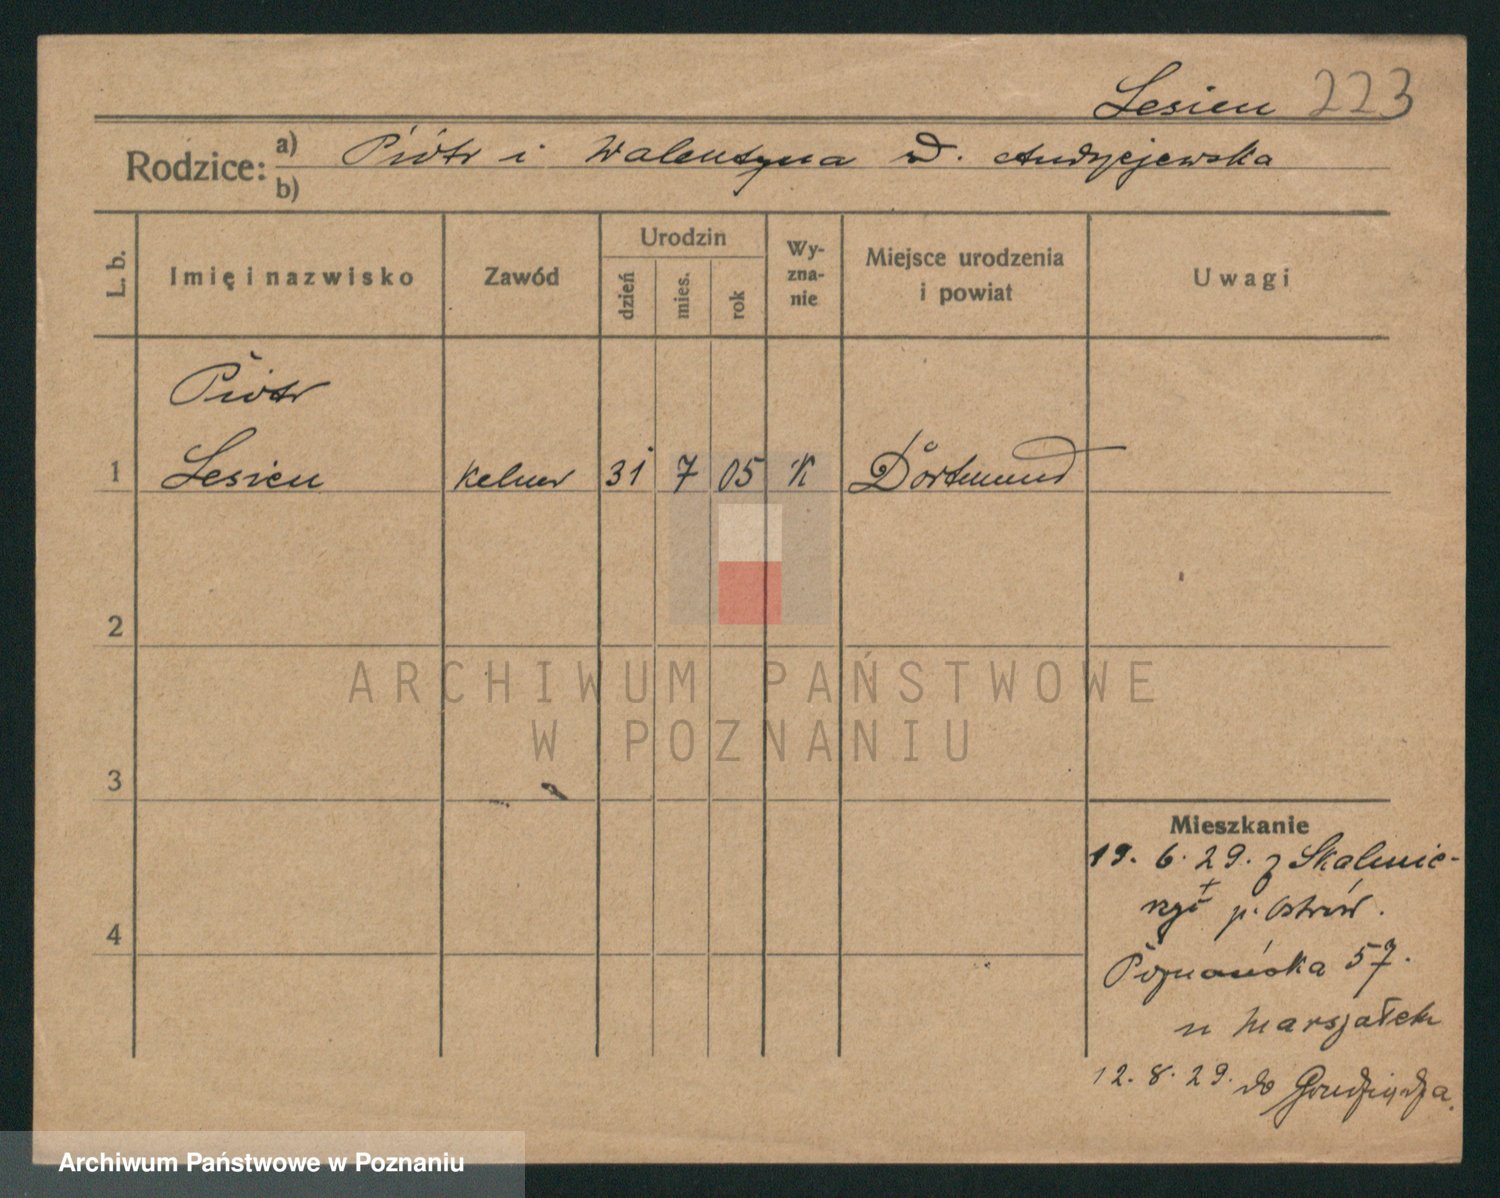 Lesien 223
Rodzice: a) Piótr i Walentyna d. Andrzejewska
b)
L. b.
Imię i nazwisko
Zawód
Urodzin
dzień
mies.
rok
Wy-
zna-
nie
Miejsce urodzenia
i powiat
Uwagi
Piotr
1 Lesien kelner 31 7 05 K Dortmund
2
3
4
Mieszkanie
19. 6. 29. z Skalmie-
rzyc p. Ostrów.
Poznańska 57.
u Marszałek
12. 8. 29. do Grudziądza.
ARCHIWUM PAŃSTWOWE
W POZNANIU
Archiwum Państwowe w Poznaniu